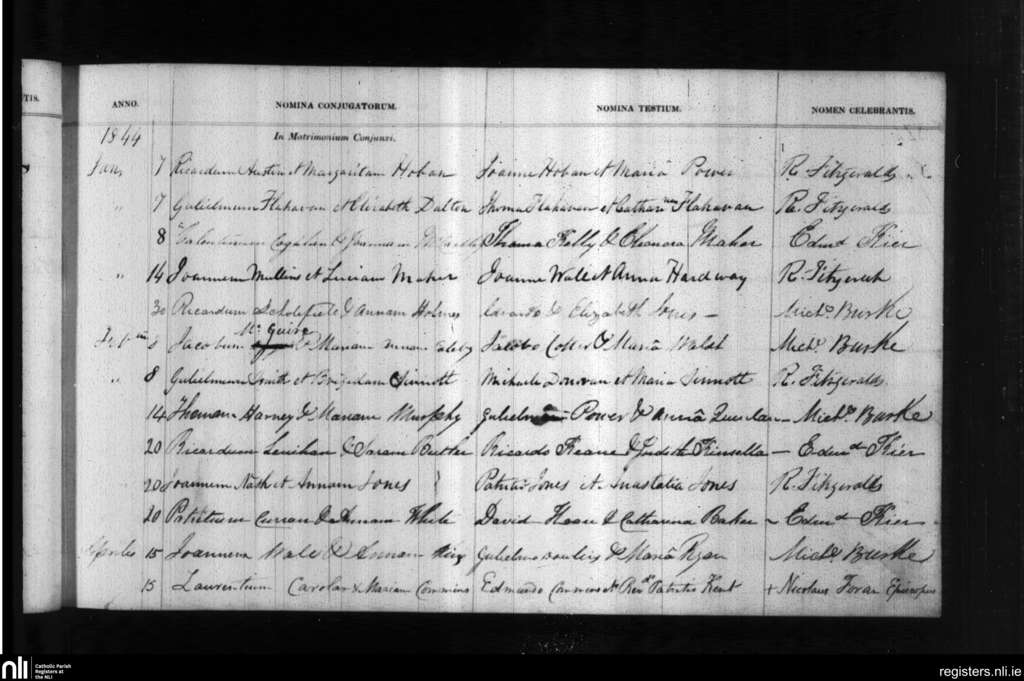 TIS.
ANNO. NOMINA CONJUGATORUM. NOMINA TESTIUM. NOMEN CELEBRANTIS.
1844 In Matrimonium Conjunxi.
Jan 7 Ricardum Austin et Margaritam Hoban Joanne Hoban et Maria Power R. Fitzgerald
" 7 Gulielmum Flahavan et Elizabeth Dalton Thoma Flahavan et Catharina Flahavan R. Fitzgerald
8 Valentinum & Joannam Thoma Kelly & Eleanora Maher Edmd Kier
" 14 Joannem Mullins et Luciam Maher Joanne Wall et Anna Hardway R. Fitzgerald
30 Ricardum Scholefield & Annam Holmes Edvardo & Elizabeth Jones Michl Burke
Mc Guire
8 Jacobum & Mariam Jacobo & Maria Walsh Michl Burke
" 8 Gulielmum Smith et Brigidam Sinnott Michaele Donovan et Maria Sinnott R. Fitzgerald
14 Thomam Harney & Mariam Murphy Gulielmo Power & Anna Michl Burke
20 Ricardum Lenihan & Saram Butler Ricardo Keane & Judith Kinsella Edmd Kier
20 Joannem Nash et Annam Jones Patritio Jones et Anastatia Jones R. Fitzgerald
20 Patritium Curran & Annam White David & Catharina Baker Edmd Kier
Aprilis 15 Joannem Wall & Annam Gulielmo & Maria Ryan Michl Burke
15 Laurentium Carolan & Mariam Commins Edmundo Commins et Revd Patritio Kent + Nicolaus Foran Episcopus
nli Catholic Parish
Registers at
the NLI
registers.nli.ie